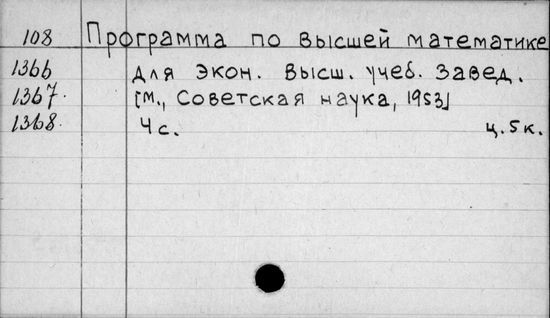 108 Программа по высшей математике
1366 для экон. высш. учеб. завед.
1367. [М., Советская наука, 1953]
1368. 4 с. ц. 5 к.